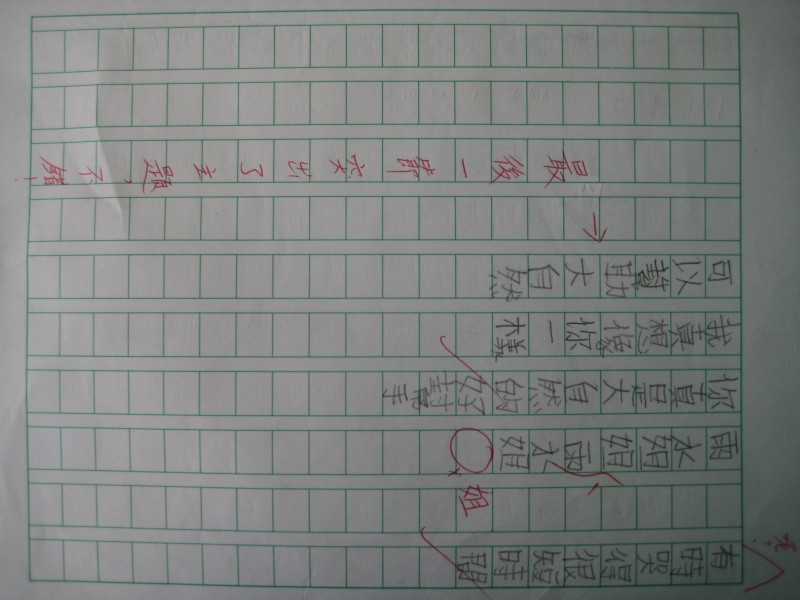 有時哭得很短時間
姐
雨水姐姐雨水姐
你真是大自然的好幫手
我真想像你一樣
可以幫助大自然
最後一節突出了主題，不錯！